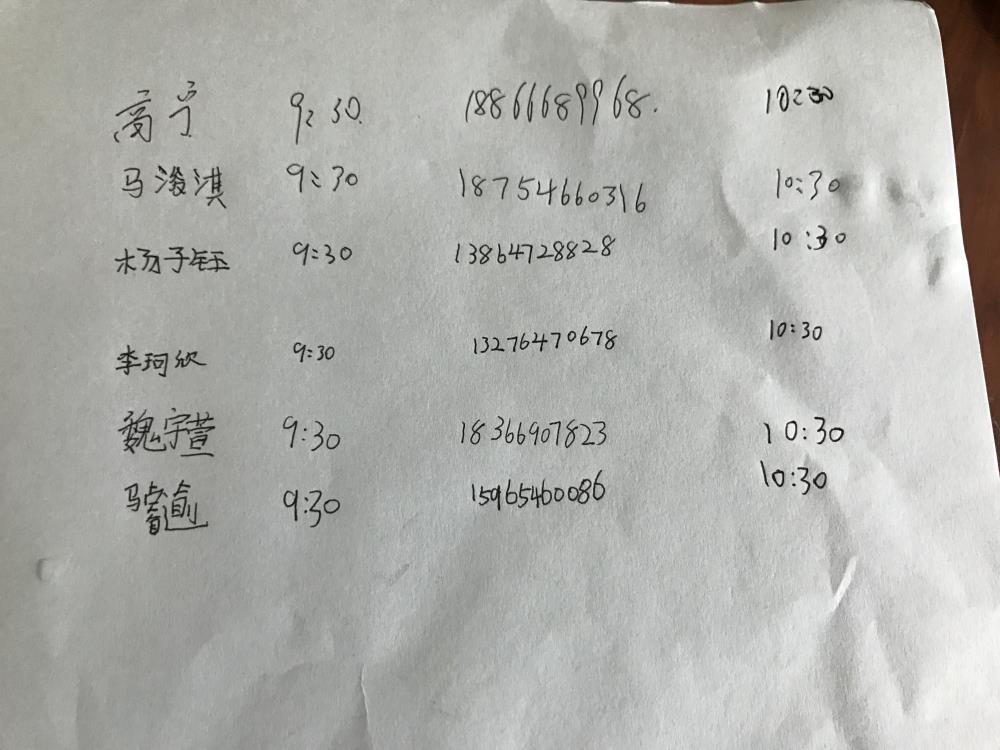 高宁 9:30. 18866689968. 10:30
马浚淇 9:30 18754660316 10:30
杨子钰 9:30 13864728828 10:30
李珂欣 9:30 13276470678 10:30
魏宇萱 9:30 18366907823 10:30
马睿逾 9:30 15965460086 10:30